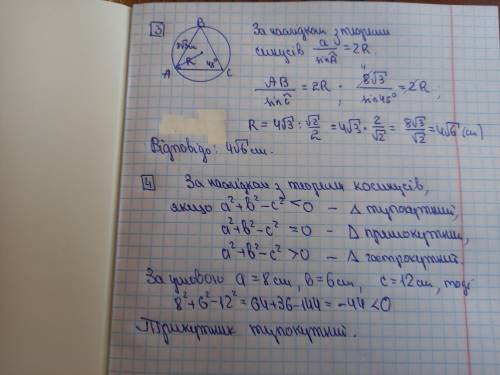 3
B
8√3 см
R
45°
A
C
За наслідком з теореми
синусів a/sinÂ = 2R.
AB/sinĈ = 2R ; 4 8√3/sin45° = 2R ;
R = 4√3 : √2/2 = 4√3 · 2/√2 = 8√3/√2 = 4√6 (см)
Відповідь: 4√6 см.
4 За наслідком з теореми косинусів,
якщо a²+b²-c² < 0 - Δ тупокутний,
a²+b²-c² = 0 - Δ прямокутний,
a²+b²-c² > 0 - Δ гострокутний
За умовою a = 8 см, b = 6 см, c = 12 см, тоді
8²+6²-12² = 64+36-144 = -44 < 0
Трикутник тупокутний.